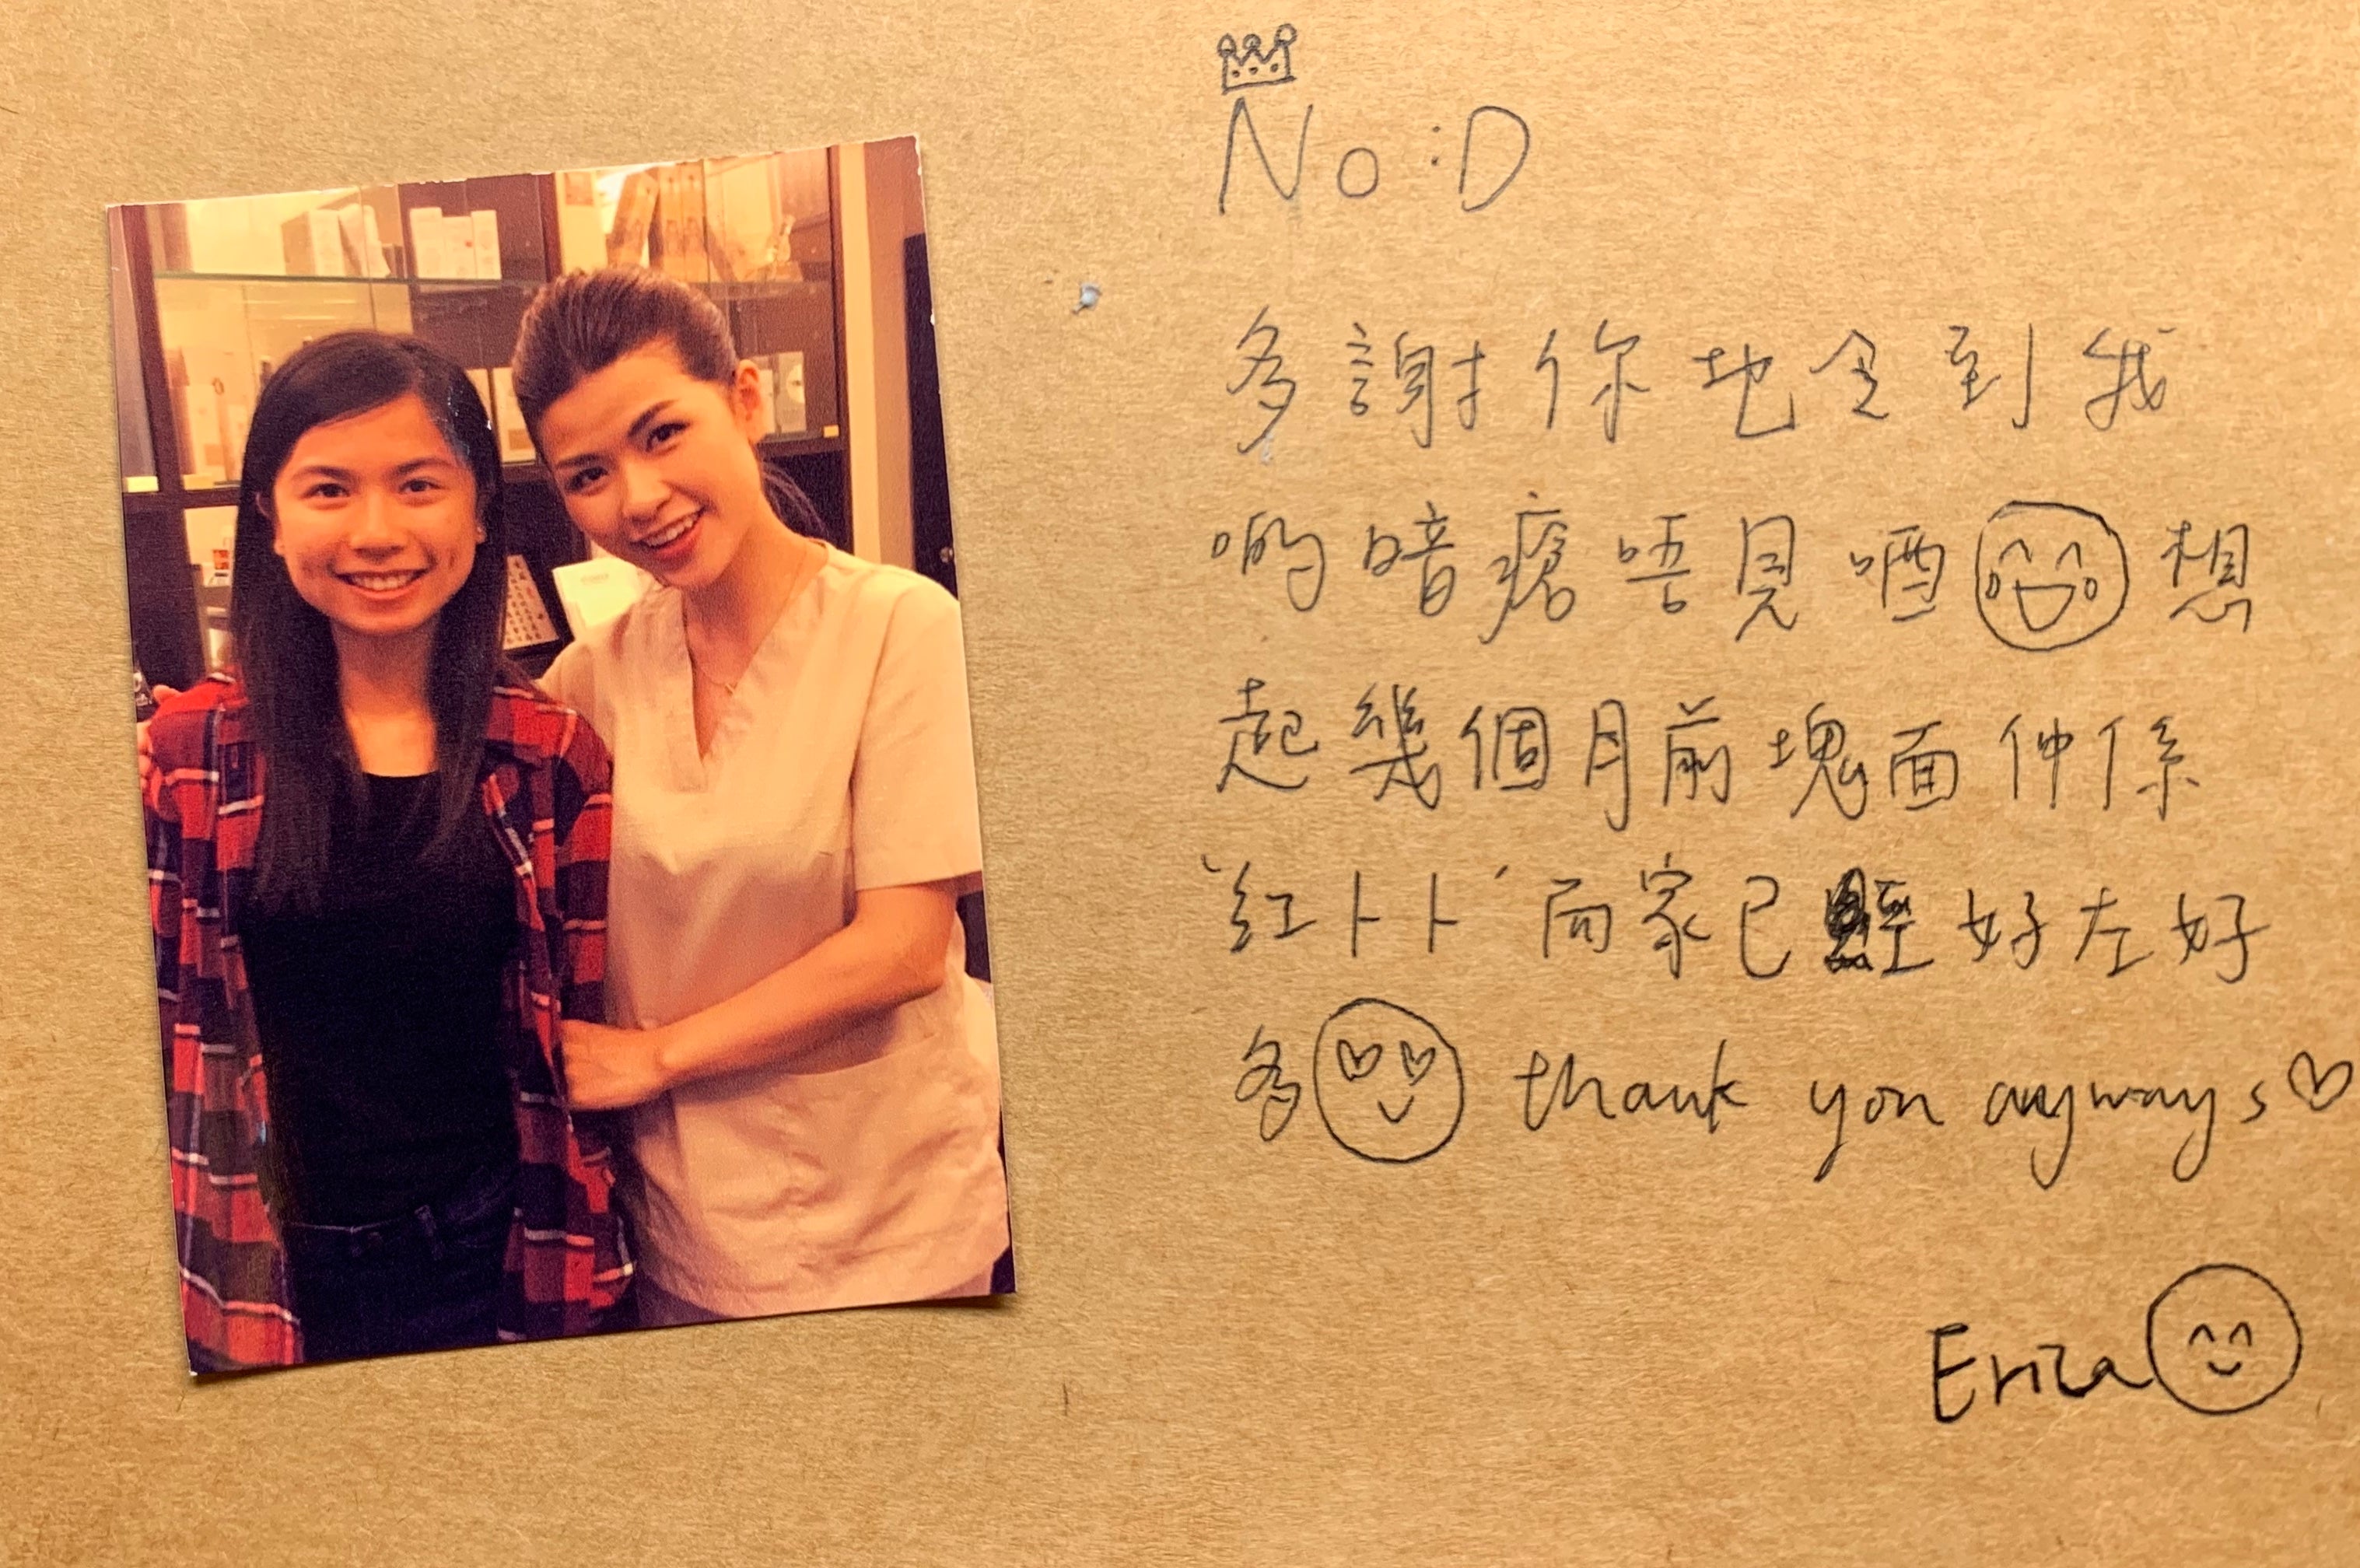 No :D
多謝你地令到我
啲暗瘡唔見晒 想
起幾個月前塊面仲係
'紅卜卜' 而家已經好左好
多 thank you anyways
Erica